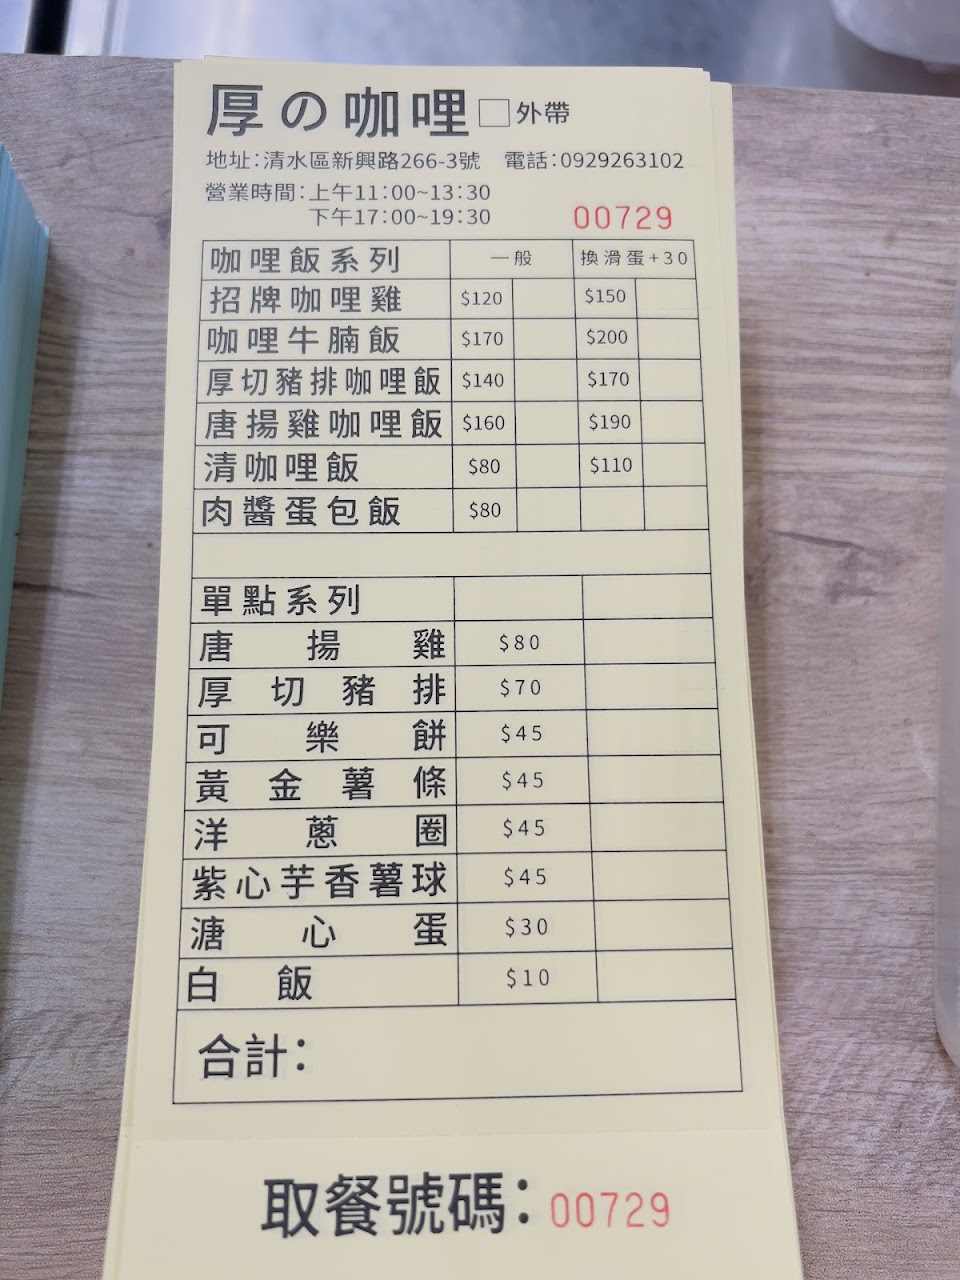 厚の咖哩□外帶
地址:清水區新興路266-3號 電話:0929263102
營業時間:上午11:00~13:30
下午17:00~19:30
00729
咖哩飯系列 一般 換滑蛋+30
招牌咖哩雞 $120 $150
咖哩牛腩飯 $170 $200
厚切豬排咖哩飯 $140 $170
唐揚雞咖哩飯 $160 $190
清咖哩飯 $80 $110
肉醬蛋包飯 $80
單點系列
唐揚雞 $80
厚切豬排 $70
可樂餅 $45
黃金薯條 $45
洋蔥圈 $45
紫心芋香薯球 $45
溏心蛋 $30
白飯 $10
合計:
取餐號碼:00729